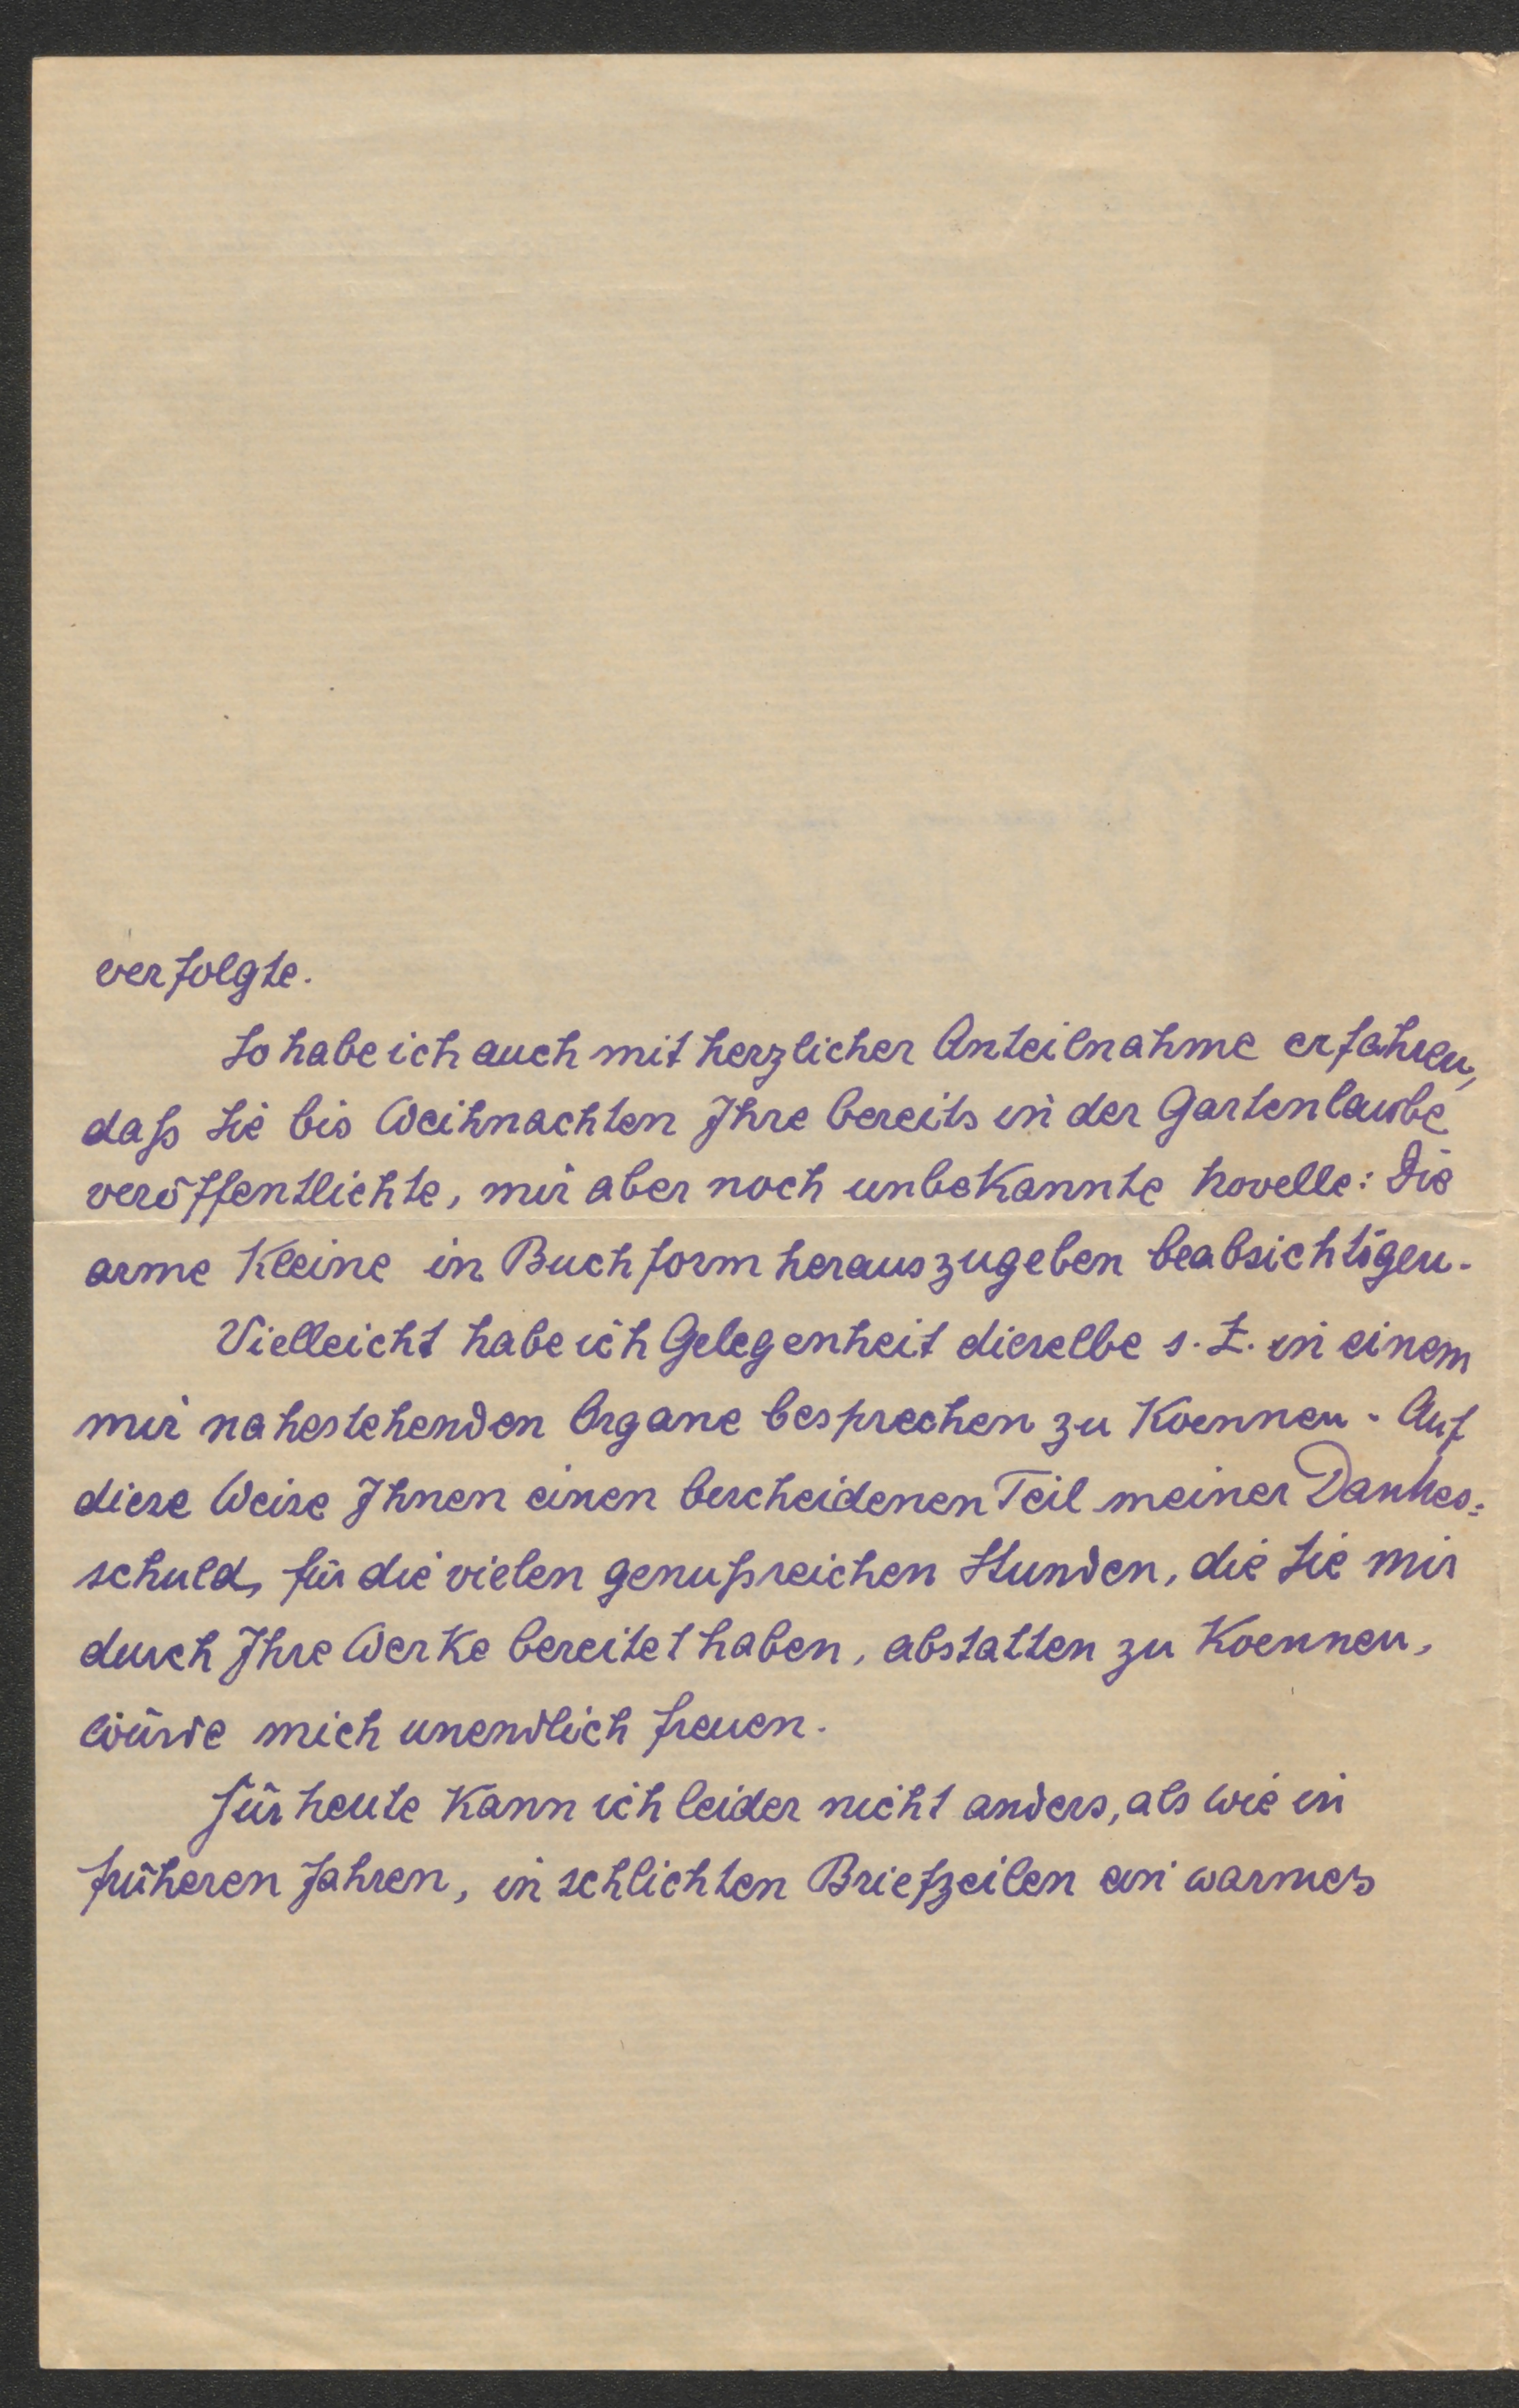 verfolgte.
So habe ich auch mit herzlicher Anteilnahme erfahren,
daß Sie bis Weihnachten Ihre bereits in der Gartenlaube
veröffentlichte, mir aber noch unbekannte Novelle: Die
arme Kleine in Buchform herauszugeben beabsichtigen.
Vielleicht habe ich Gelegenheit dieselbe s. Z. in einem
mir nahestehenden Organe besprechen zu Koennen. Auf
diese Weise Ihnen einen bescheidenen Teil meiner Dankes=
schuld, für die vielen genußreichen Stunden, die Sie mir
durch Ihre Werke bereitet haben, abstatten zu Koennen,
würde mich unendlich freuen.
Für heute kann ich leider nicht anders, als wie in
früheren Jahren, in schlichten Briefzeilen ein warmes